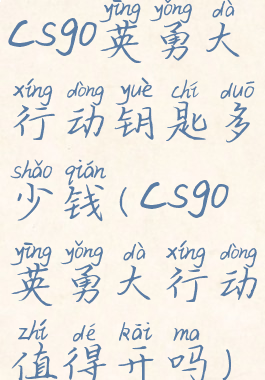 yīng yǒng dà
CSgo英勇大
xíng dòng yuè chí duō
行动钥匙多
shǎo qián
少钱(CSgo
yīng yǒng dà xíng dòng
英勇大行动
zhí dé kāi ma
值得开吗)